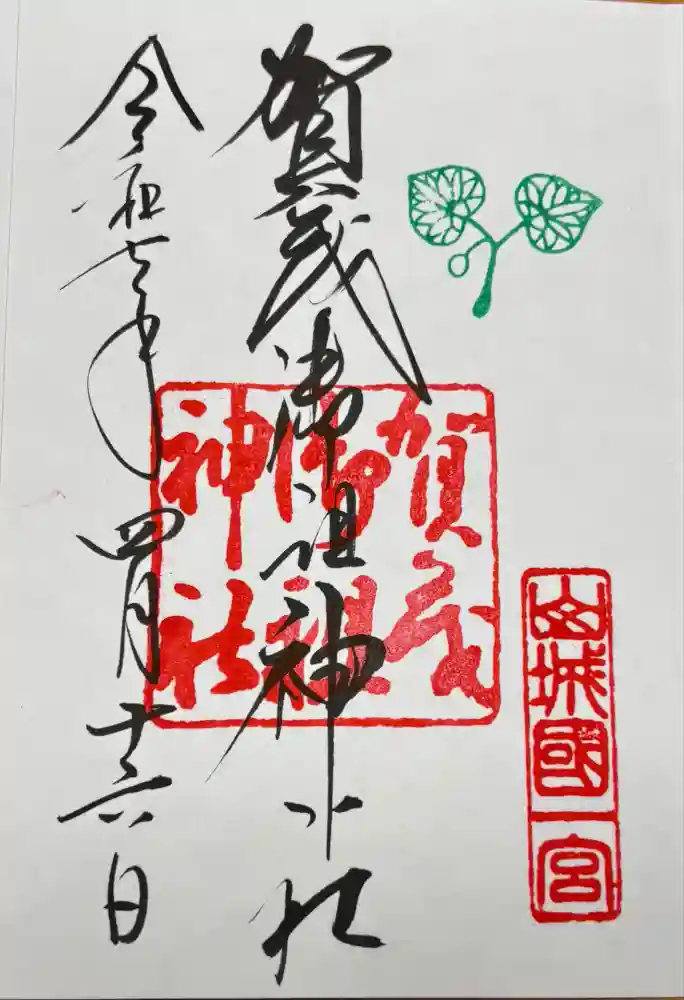 山城國一宮
賀茂御祖神社
賀茂御祖神社
令和七年四月十六日